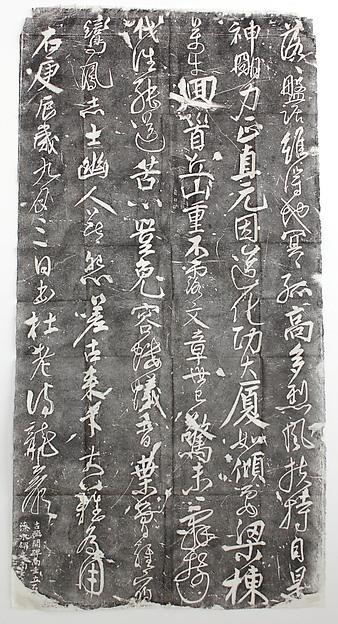 落落盤踞雖得地冥冥孤高多烈風扶持自是
神明力正直元因造化功大廈如傾要梁棟
萬牛回首丘山重不露文章世已驚未辭剪
伐誰能送苦心豈免容螻蟻香葉曾經宿
鸞鳳志士幽人莫怨嗟古來才大難為用
右庚辰歲九月三日書杜老詩龍巖